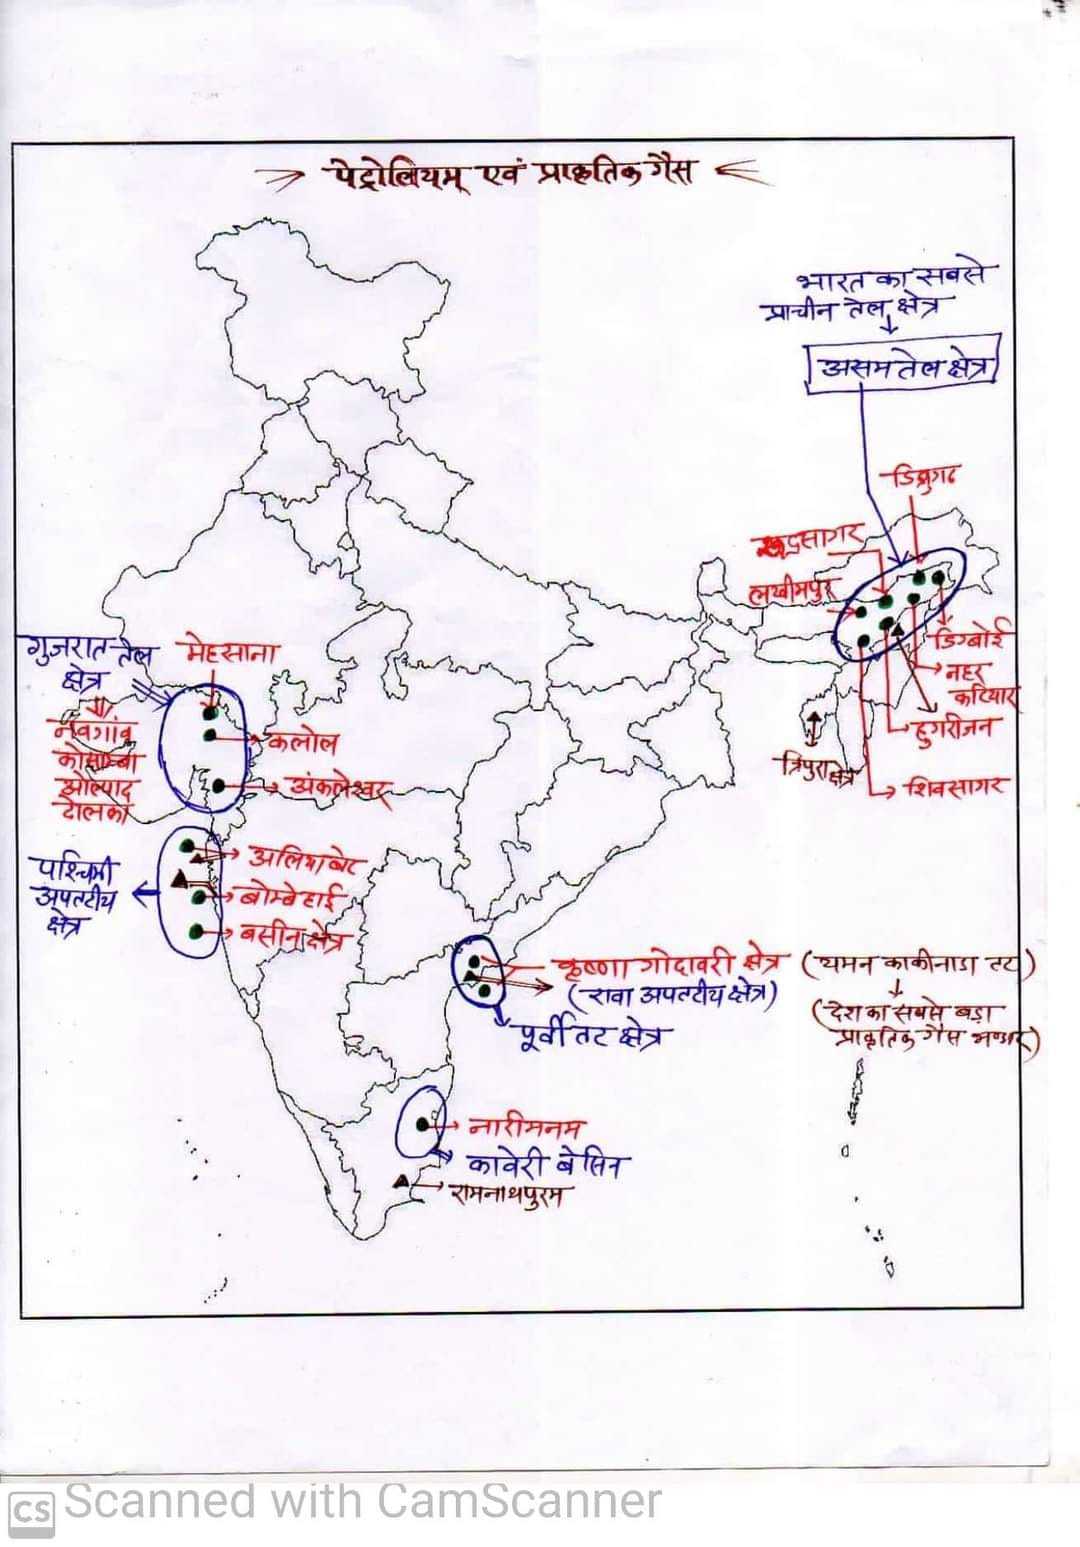 पेट्रोलियम् एवं प्राकृतिक गैस
भारत का सबसे
प्राचीन तेल क्षेत्र
असम तेल क्षेत्र
डिब्रुगढ
रूद्रसागर
लखीमपुर
डिग्बोई
नहर
कटियार
हुगरीजन
शिवसागर
त्रिपुरा क्षेत्र
गुजरात तेल
क्षेत्र
नवगांव
कोसाम्बा
ओल्पाद
ढोलका
मेहसाना
कलोल
अंकलेश्वर
पश्चिमी
अपतटीय
क्षेत्र
अलियाबेट
बोम्बे हाई
बसीन क्षेत्र
कृष्णा गोदावरी क्षेत्र (यमन काकीनाडा तट)
(रावा अपतटीय क्षेत्र)
(देश का सबसे बड़ा
प्राकृतिक गैस भण्डार)
पूर्वी तट क्षेत्र
नारीमनम
कावेरी बेसिन
रामनाथपुरम
CS Scanned with CamScanner